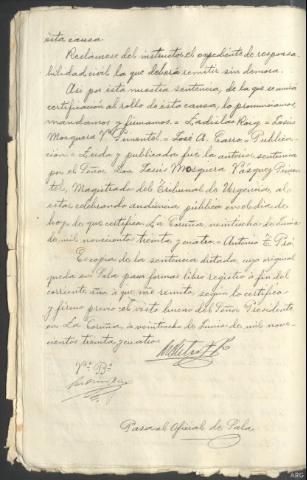 esta causa
Reclamese del instructor el expediente de responsa-
bilidad civil la que deberá remitir sin demora.
Asi por esta nuestra sentencia, de la que se unirá
certificación al rollo de esta causa, lo pronunciamos
mandamos y firmamos. = Ladislao Roig = Jesús
Mosquera Vz Pimentel = José A. Casro = Publica-
ción = Leida y publicada fue la anterior sentencia
por el Señor Don Jesús Mosquera Vasquez Pimen-
tel, Magistrado del Tribunal de Urgencia, al
estar celebrando audiencia pública en el dia de
hoy, de que certifico. La Coruña, veintiocho de Junio
de mil novecientos treinta y cuatro = Antonio
Es copia de la sentencia dictada, cuyo original
queda en Sala para formar libro registro a fin del
corriente año a que me remito, segun lo certifico
y firmo previo el visto bueno del Señor Presidente
en La Coruña, a veintiocho de Junio de mil nove-
cientos treinta y cuatro =
Vº Bº
Pasa al Oficial de Sala
ARG